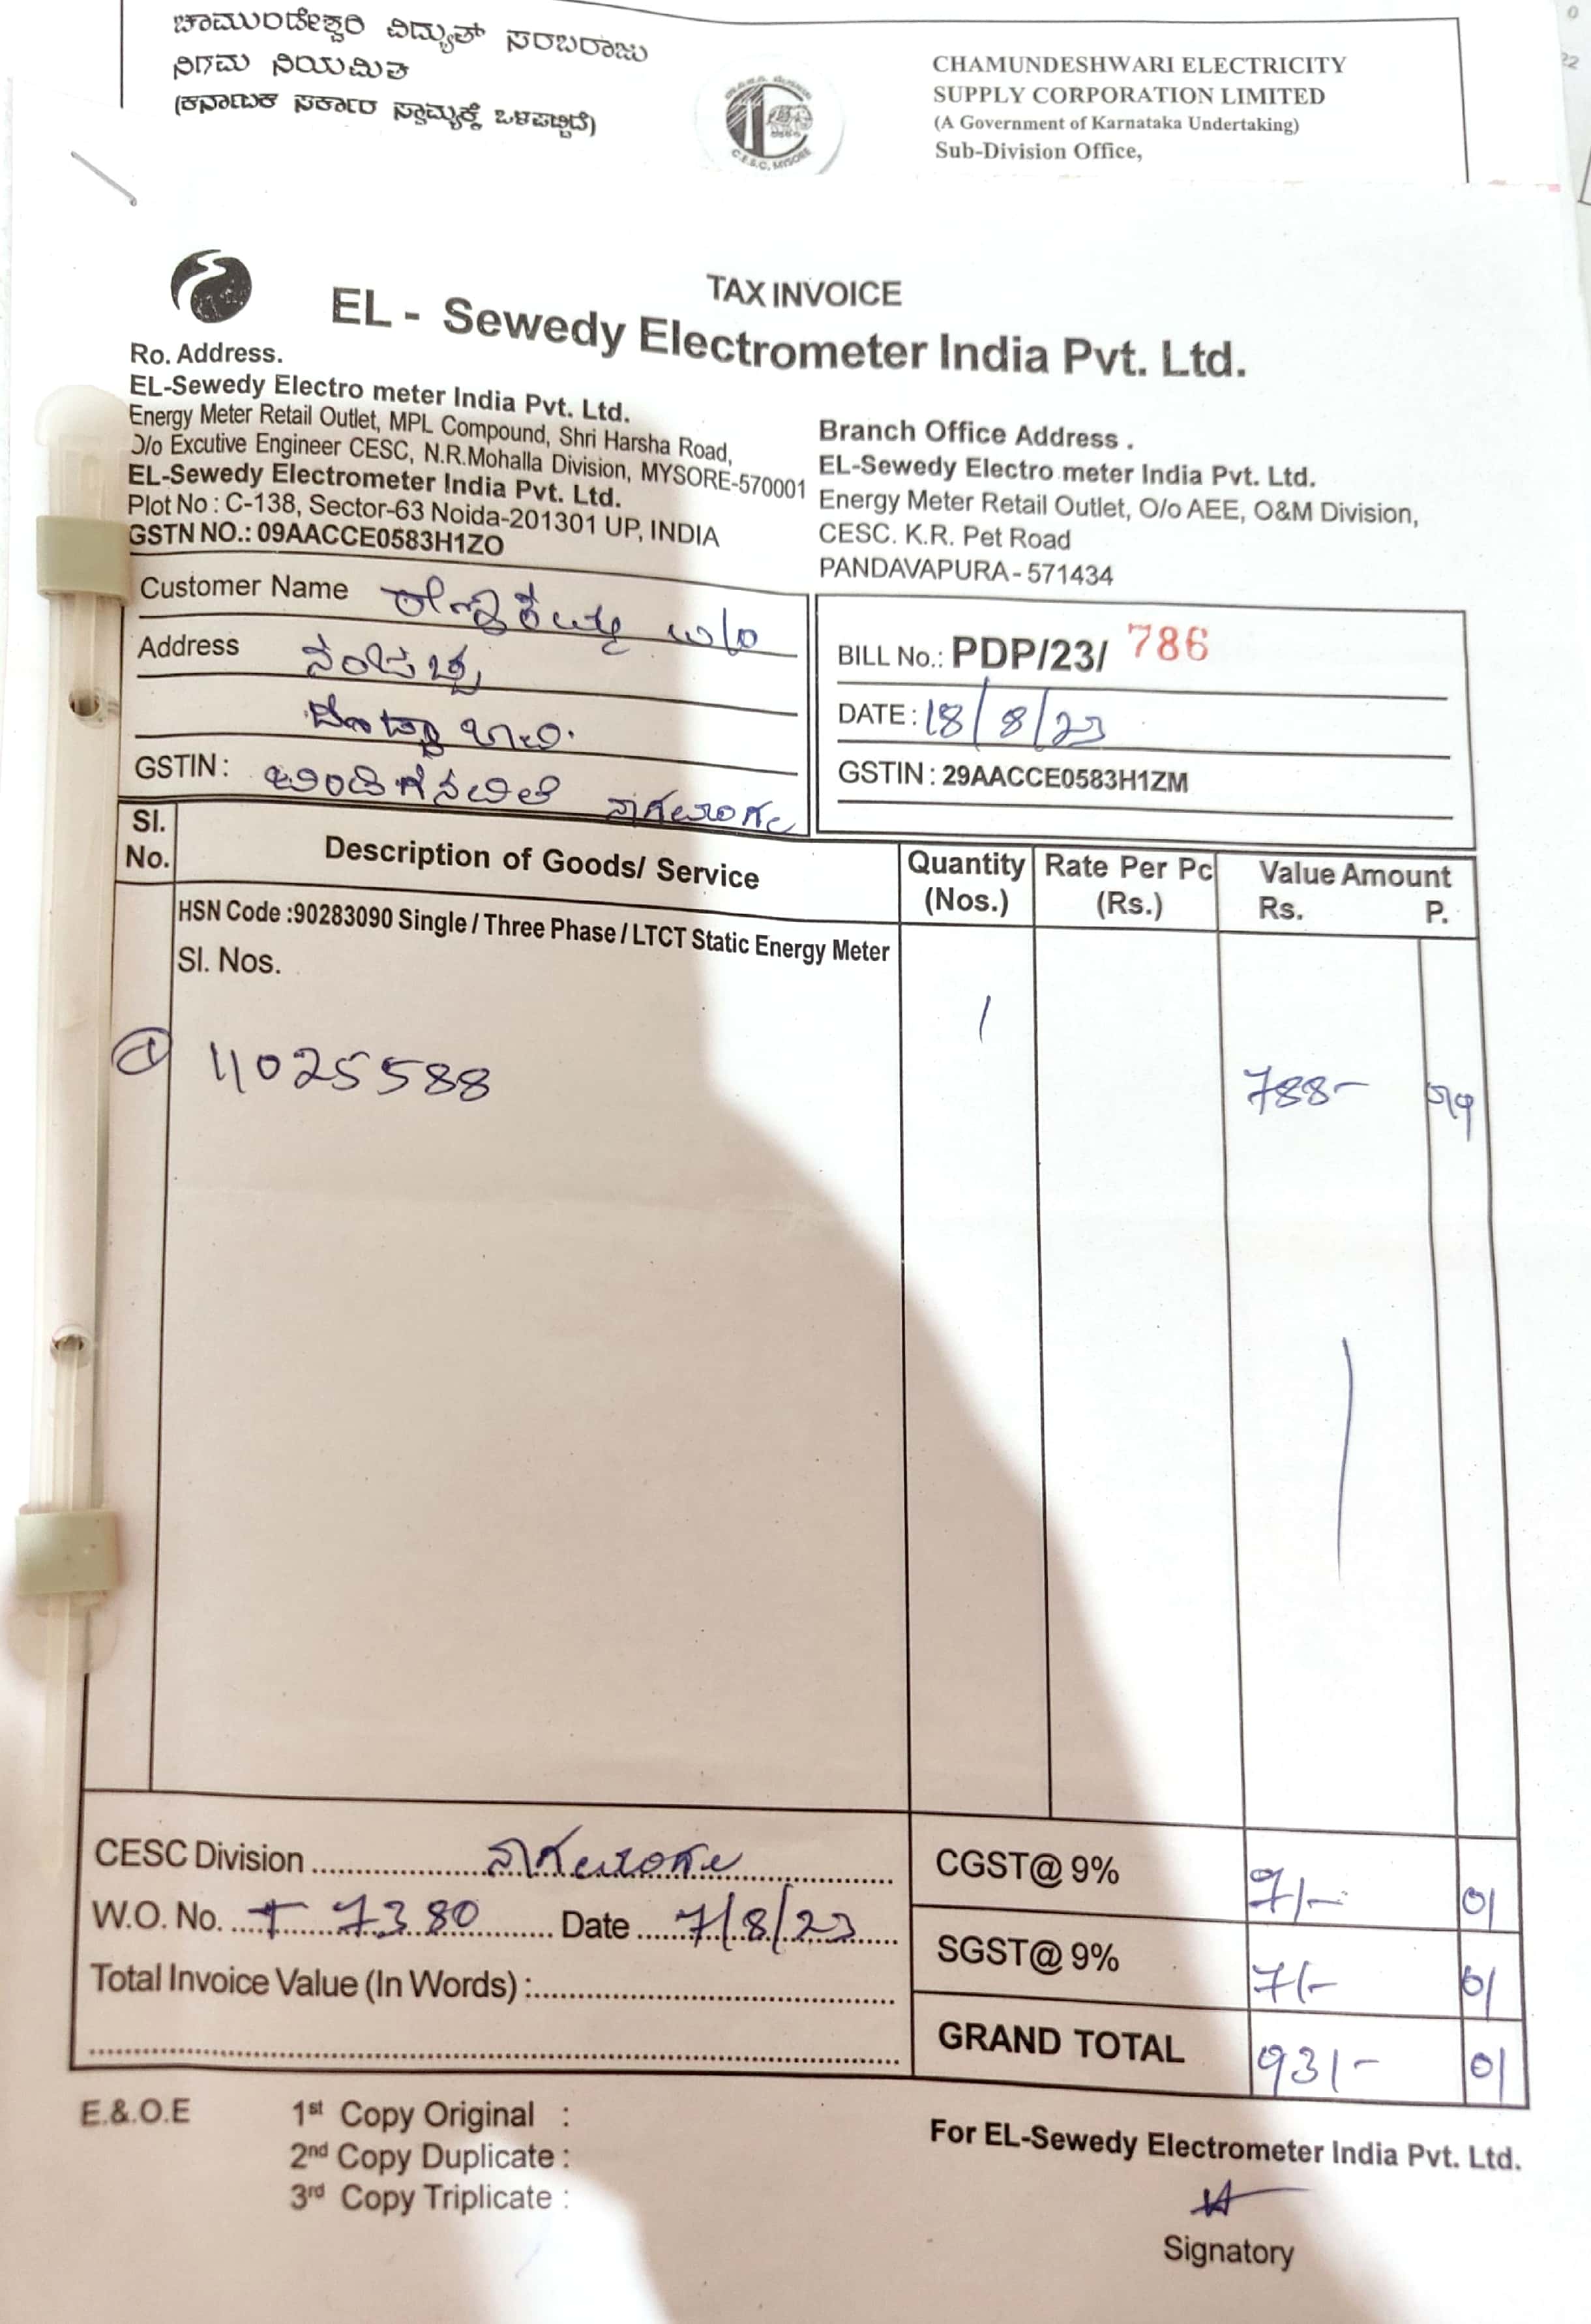 ಚಾಮುಂಡೇಶ್ವರಿ ವಿದ್ಯುತ್ ಸರಬರಾಜು
ನಿಗಮ ನಿಯಮಿತ
(ಕರ್ನಾಟಕ ಸರ್ಕಾರ ಸ್ವಾಮ್ಯಕ್ಕೆ ಒಳಪಟ್ಟಿದೆ)
C.E.S.C, MYSORE
CHAMUNDESHWARI ELECTRICITY
SUPPLY CORPORATION LIMITED
(A Government of Karnataka Undertaking)
Sub-Division Office,
TAX INVOICE
EL - Sewedy Electrometer India Pvt. Ltd.
Ro. Address.
EL-Sewedy Electro meter India Pvt. Ltd.
Energy Meter Retail Outlet, MPL Compound, Shri Harsha Road,
O/o Excutive Engineer CESC, N.R.Mohalla Division, MYSORE-570001
EL-Sewedy Electrometer India Pvt. Ltd.
Plot No : C-138, Sector-63 Noida-201301 UP, INDIA
GSTN NO.: 09AACCE0583H1ZO
Branch Office Address .
EL-Sewedy Electro meter India Pvt. Ltd.
Energy Meter Retail Outlet, O/o AEE, O&M Division,
CESC. K.R. Pet Road
PANDAVAPURA - 571434
Customer Name
Address
GSTIN : ಬಿಂಡಿಗನವಿಲೆ ನಾಗಮಂಗಲ
BILL No.: PDP/23/ 786
DATE : 18/8/23
GSTIN : 29AACCE0583H1ZM
Sl. No. Description of Goods/ Service Quantity (Nos.) Rate Per Pc (Rs.) Value Amount Rs. P.
HSN Code :90283090 Single / Three Phase / LTCT Static Energy Meter
Sl. Nos.
1 11025588 1 788-
CESC Division ನಾಗಮಂಗಲ
W.O. No. T 7380 Date 7/8/23
Total Invoice Value (In Words) :
CGST@ 9% 71- 01
SGST@ 9% 71- 01
GRAND TOTAL 931- 01
E.& O.E
1st Copy Original :
2nd Copy Duplicate :
3rd Copy Triplicate :
For EL-Sewedy Electrometer India Pvt. Ltd.
Signatory